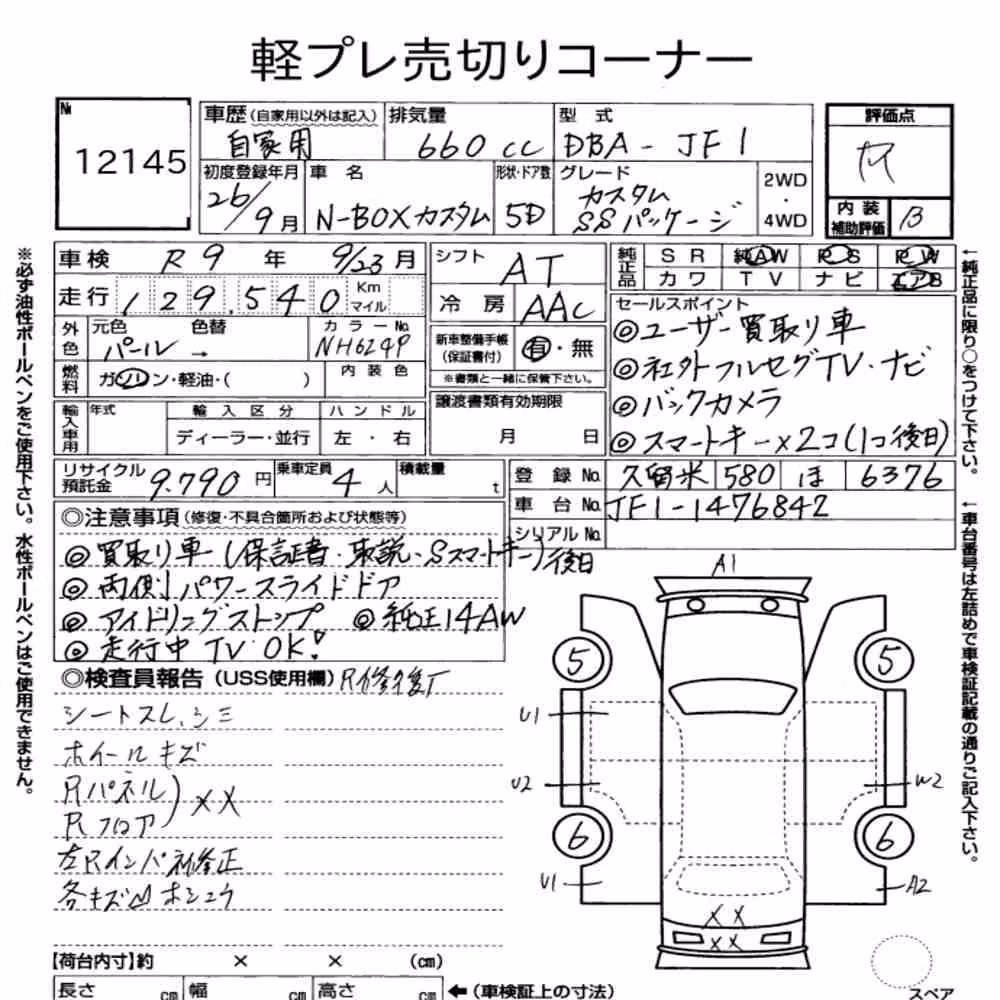 軽プレ売切りコーナー
№
12145
車歴(自家用以外は記入)
自家用
排気量
660 cc
型 式
DBA - JF1
評価点
初度登録年月
26/9月
車 名
N-BOXカスタム
形状・ドア数
5D
グレード
カスタム
SSパッケージ
2WD
・
4WD
内装
補助評価
B
車検 R9 年 9/23 月
走行 129,540 Km
マイル
外色
元色
色替
パール →
カラーNo.
NH624P
燃料
ガソリン・軽油・( )
内装色
輸入車用
年式
輸入区分
ディーラー・並行
ハンドル
左・右
シフト
AT
冷房
AAC
新車整備手帳
(保証書付)
有・無
※書類と一緒に保管下さい。
譲渡書類有効期限
月 日
純正品
SR
純AW
PS
PW
カワ
TV
ナビ
エアB
セールスポイント
◎ユーザー買取り車
◎社外フルセグTV・ナビ
◎バックカメラ
◎スマートキー×2コ(1コ後日)
リサイクル
預託金
9,790 円
乗車定員
4 人
積載量
t
登録No.
久留米 580 ほ 6376
車台No.
JF1-1476842
シリアルNo.
◎注意事項(修復・不具合箇所および状態等)
◎買取り車(保証書・取説・Sスマートキー)後日
◎両側パワースライドドア
◎アイドリングストップ ◎純正14AW
◎走行中TV OK!
◎検査員報告(USS使用欄)
シートスレ、シミ
ホイールキズ
Rパネル
Rフロア
××
左Rインパネ修正
各キズ凹ホシュウ
A1
5
5
U1
U2
W2
6
6
U1
A2
××
××
【荷台内寸】約 × × (cm)
長さ cm
幅 cm
高さ cm
←(車検証上の寸法)
スペア
※必ず油性ボールペンをご使用下さい。水性ボールペンはご使用できません。
←純正品に限り○をつけて下さい。
←車台番号は左詰めで車検証記載の通りご記入下さい。